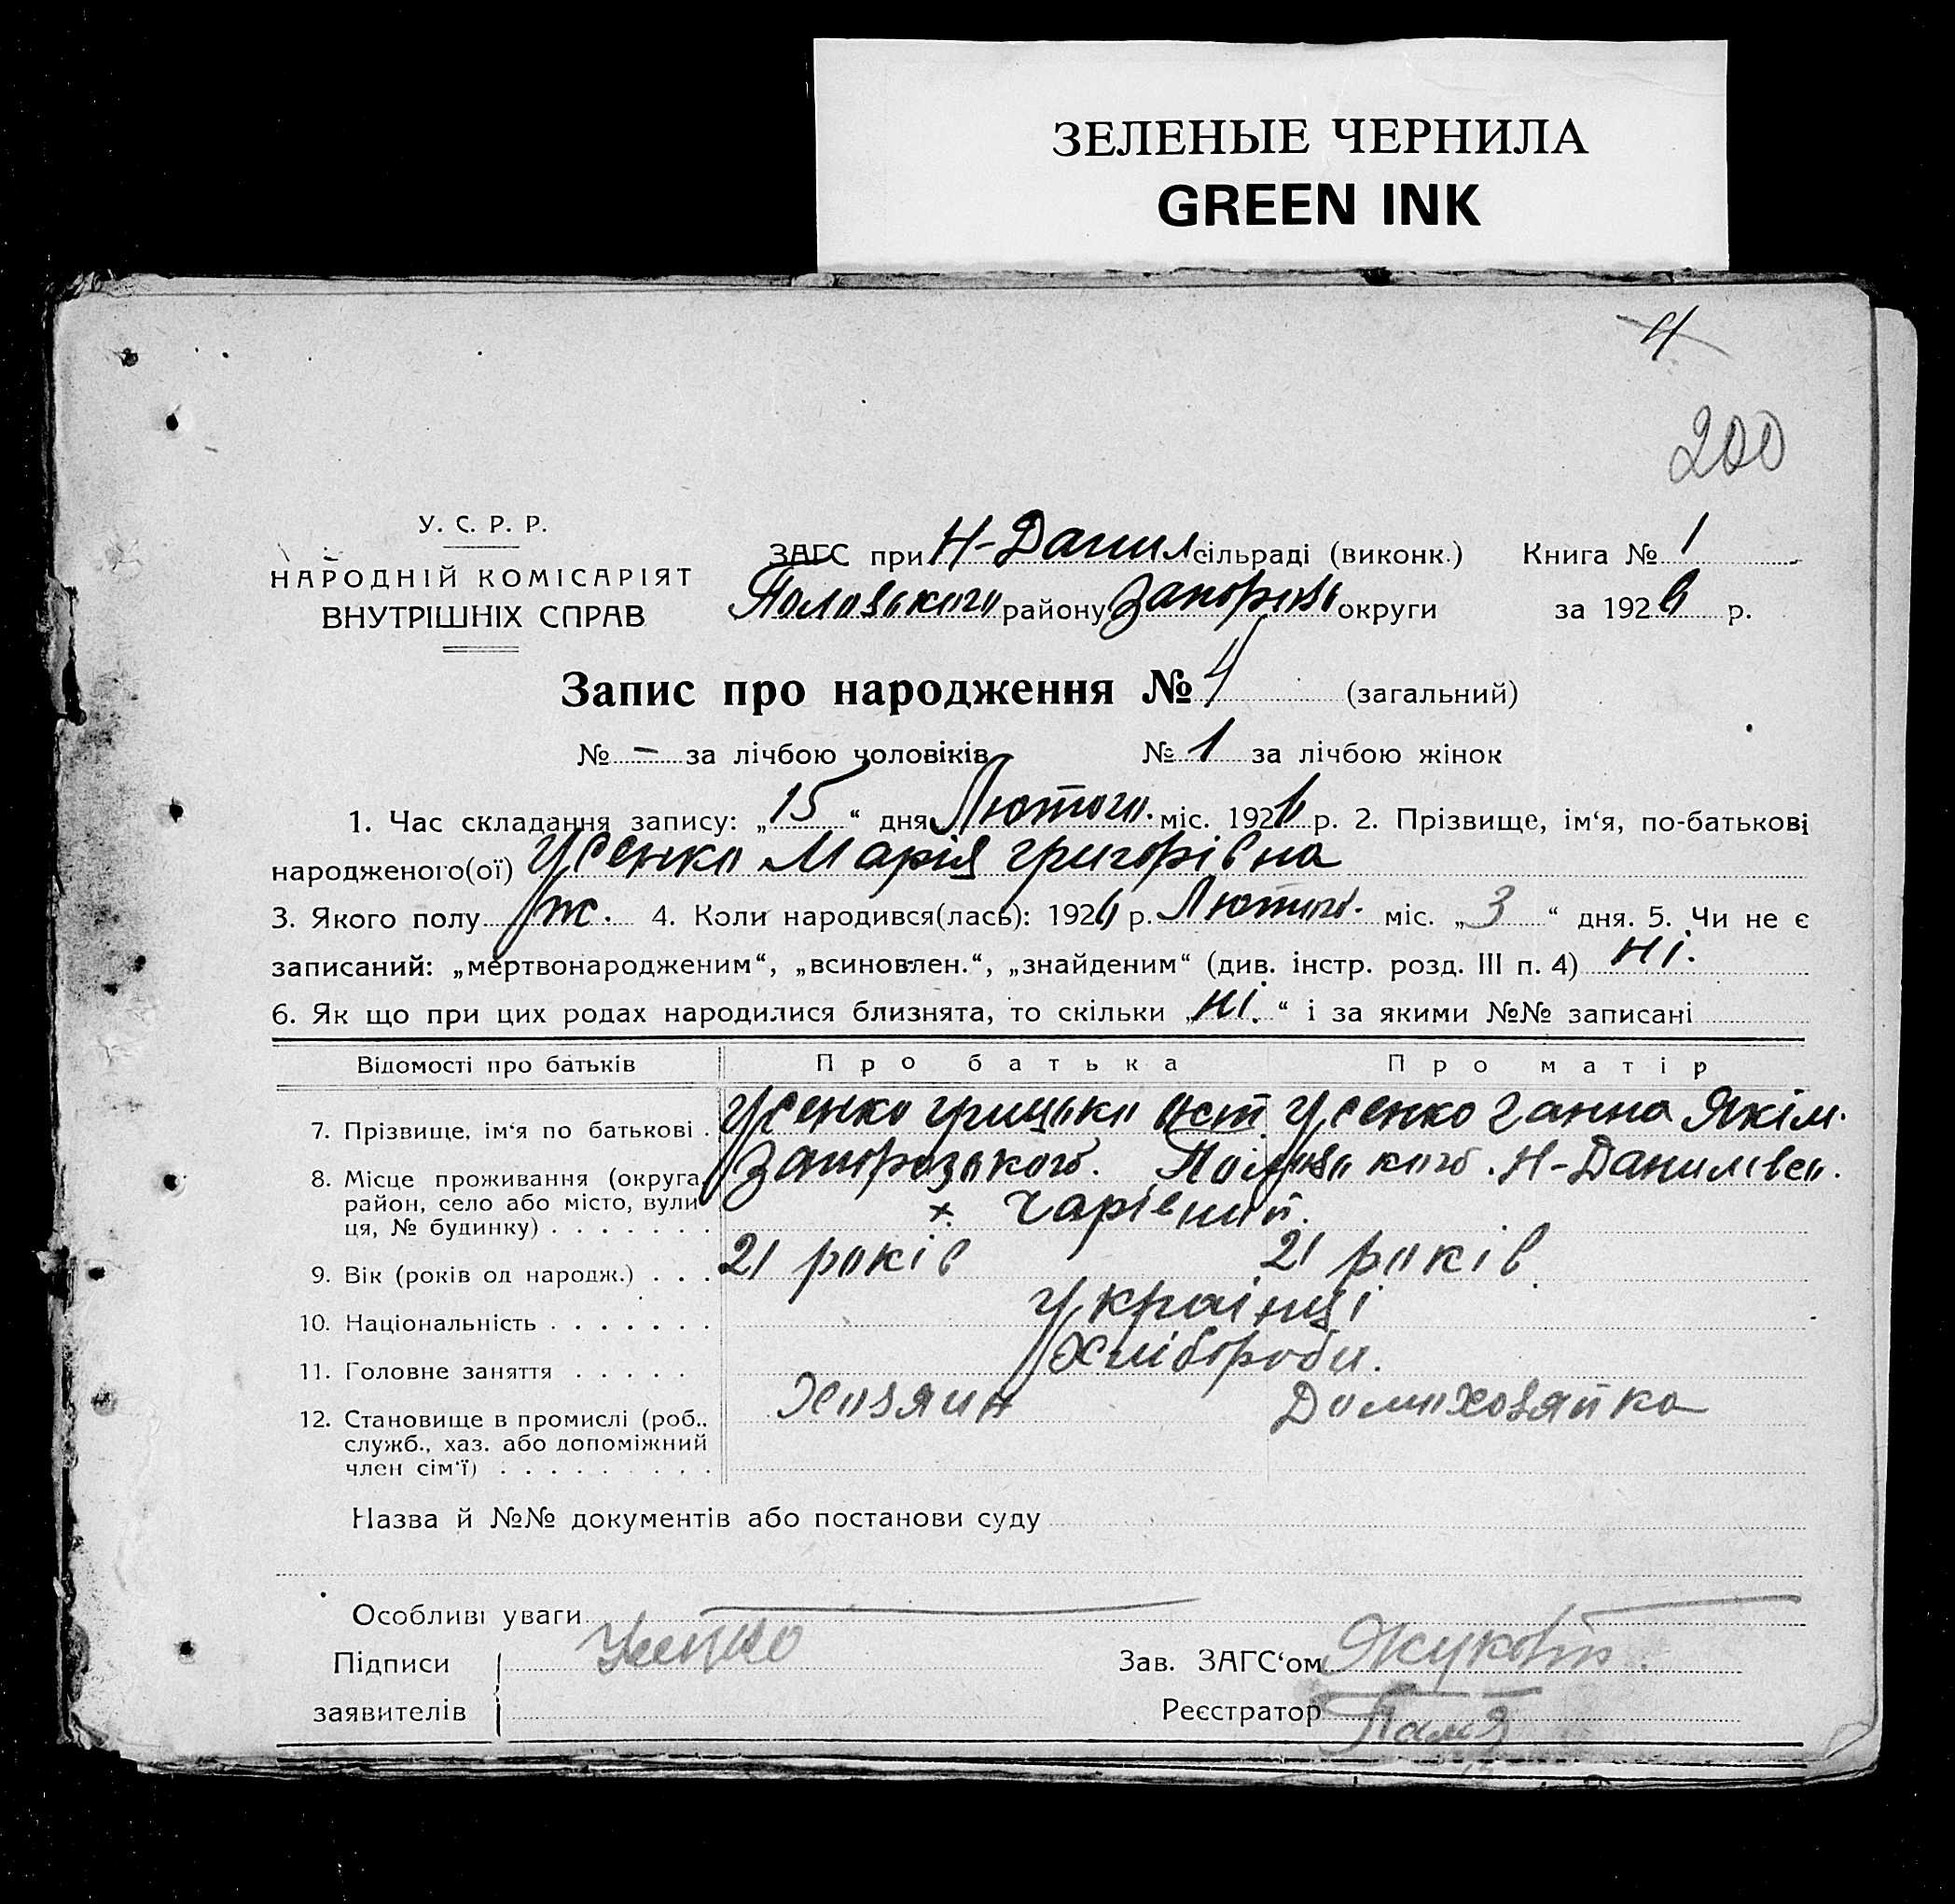 ЗЕЛЕНЫЕ ЧЕРНИЛА
GREEN INK
4
200
У. С. Р. Р.
НАРОДНІЙ КОМІСАРІЯТ
ВНУТРІШНІХ СПРАВ
ЗАГС при Н-Данил сільраді (виконк.) Книга № 1
Пологського району Запорізь округи за 1926 р.
Запис про народження № 4 (загальний)
№ – за лічбою чоловіків № 1 за лічбою жінок
1. Час складання запису: „15“ дня Лютого. міс. 1926 р. 2. Прізвище, ім‘я, по-батькові
народженого(ої) Усенко Марія Григорівна
3. Якого полу ж. 4. Коли народився(лась): 1926 р. Лютого. міс. „3“ дня. 5. Чи не є
записаний: „мертвонародженим“, „всиновлен.“, „знайденим“ (див. інстр. розд. III п. 4) ні.
6. Як що при цих родах народилися близнята, то скільки „ні.“ і за якими №№ записані
Відомості про батьків Про батька Про матір
7. Прізвище, ім‘я по батькові . Усенко Грицько Ост. Усенко Ганна Якім.
8. Місце проживання (округа, Запорозького. Н-Данилівсо.
район, село або місто, вули- х. Чарівний.
ця, № будинку) . . . . . . .
9. Вік (років од народж.) . . . 21 років 21 років.
10. Національність . . . . . . . Українці
11. Головне заняття . . . . . Хлібороби.
12. Становище в промислі (роб., Хозяин Домохозяйка
служб., хаз. або допоміжний
член сім‘ї) . . . . . . . . .
Назва й №№ документів або постанови суду
Особливі уваги
Підписи Усенко Зав. ЗАГС‘ом
заявителів Реєстратор